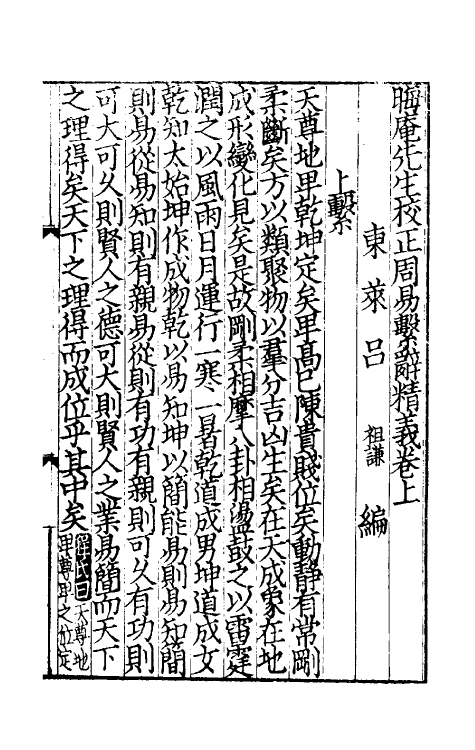 晦庵先生校正周易繫辭精義卷上
東萊呂祖謙編
上繫
天尊地卑乾坤定矣卑高已陳貴賤位矣動静有常剛
柔斷矣方以類聚物以羣分吉凶生矣在天成象在地
成形變化見矣是故剛柔相摩八卦相盪鼓之以雷霆
潤之以風雨日月運行一寒一暑乾道成男坤道成女
乾知太始坤作成物乾以易知坤以簡能易則易知簡
則易從易知則有親易從則有功有親則可久有功則
可大可久則賢人之德可大則賢人之業易簡而天下
之理得矣天下之理得而成位乎其中矣
程氏曰天尊地
卑尊卑之位定